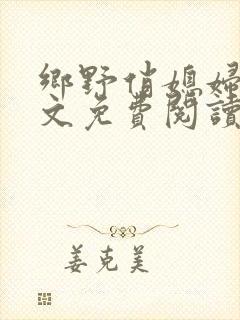 鄉野俏媳婦
文免費閱讀
姜克美